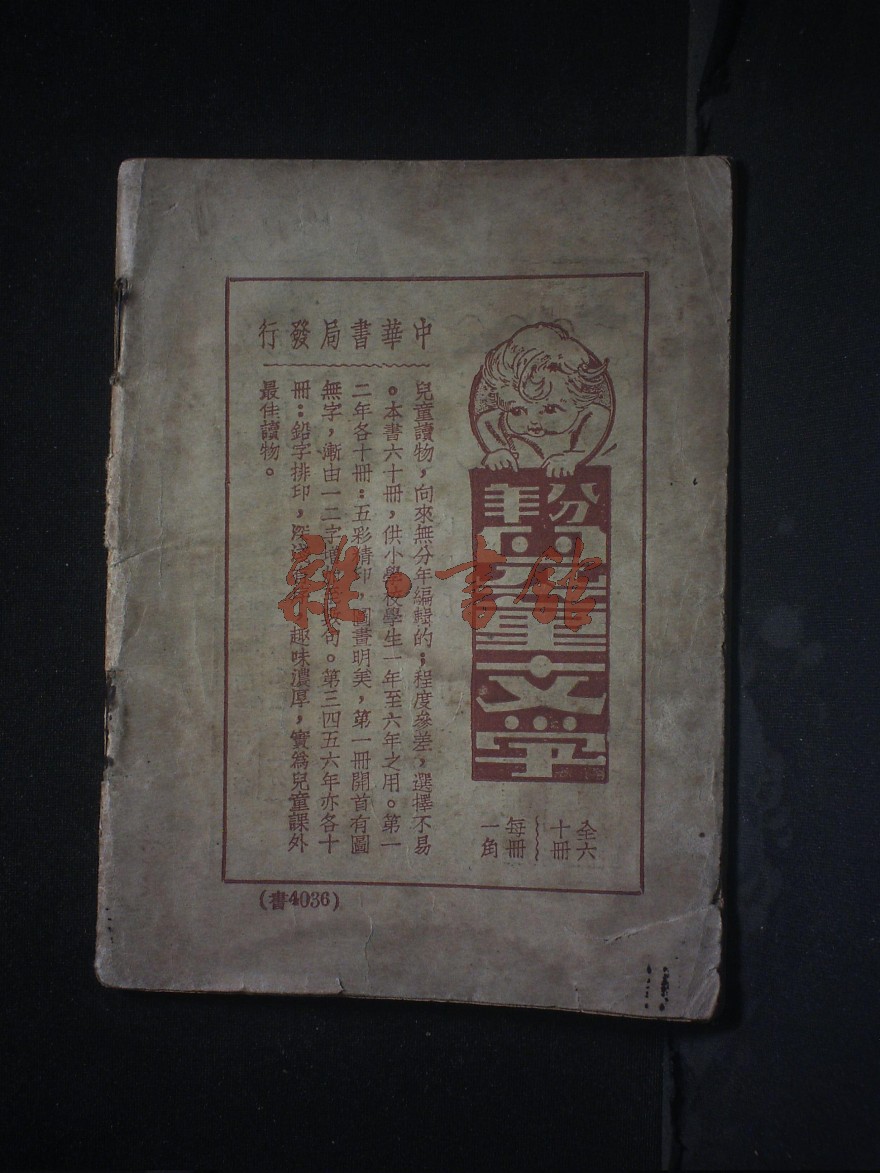 分年
兒童文學
全六
十冊
每冊
一角
中華書局發行
兒童讀物,向來無分年編輯的;程度參差,選擇不易
。本書六十冊,供小學校學生一年至六年之用。第一
二年各十冊:五彩精印,圖畫明美,第一冊開首有圖
無字,漸由一二字增句。第三四五六年亦各十
冊:鉛字排印,深淺趣味濃厚,實爲兒童課外
最佳讀物。
(書4036)
雜·書館